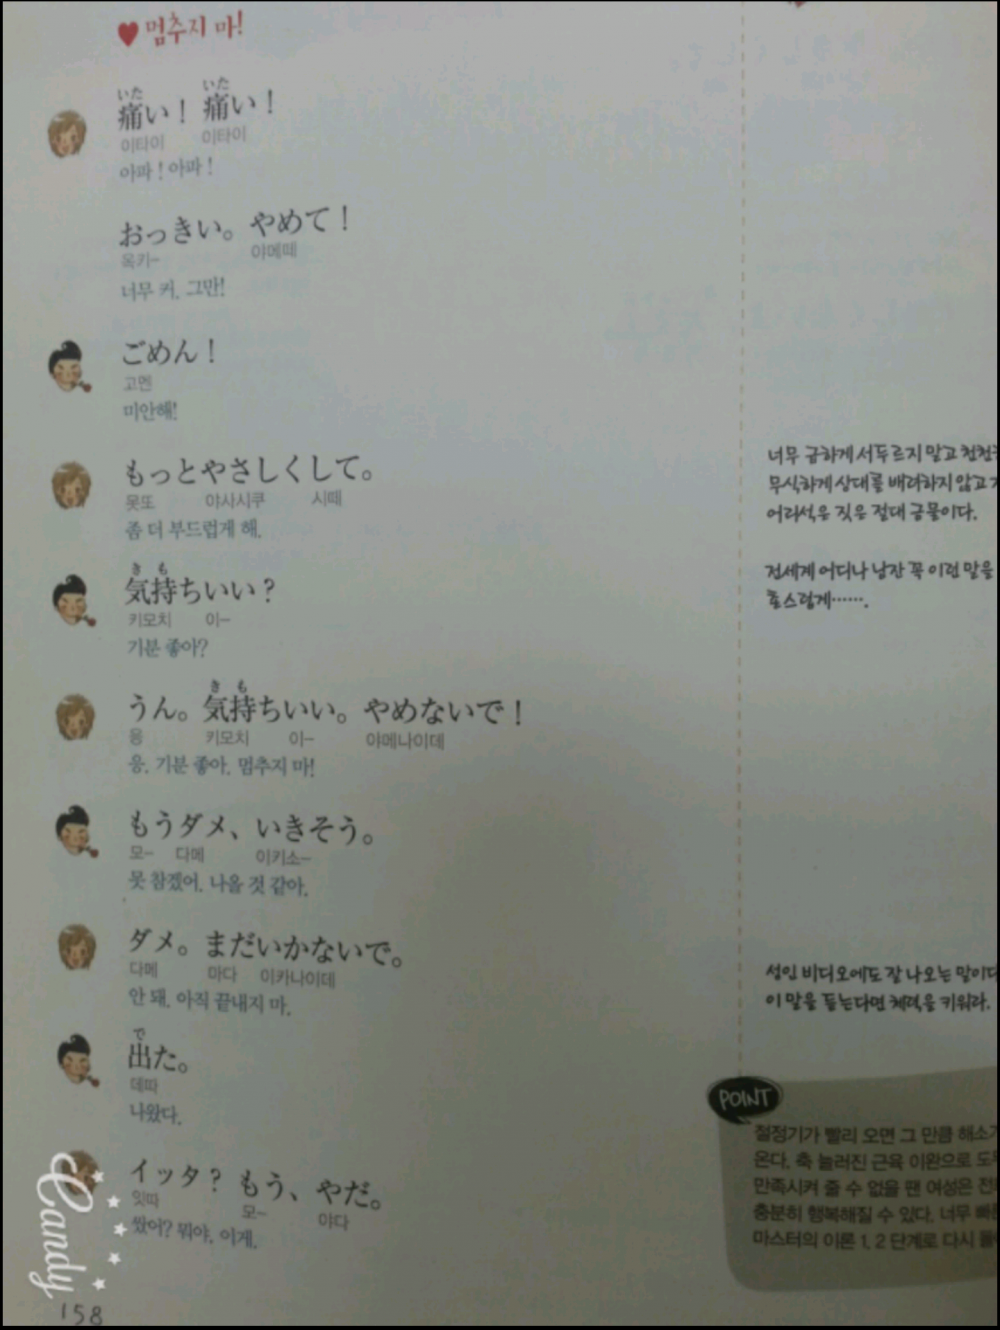 멈추지 마!
いた いた
痛い！ 痛い！
이타이 이타이
아파! 아파!
おっきい。やめて！
옥키- 야메떼
너무 커. 그만!
ごめん！
고멘
미안해!
もっとやさしくして。
못또 야사시쿠 시떼
좀 더 부드럽게 해.
きも
気持ちいい？
키모치 이-
기분 좋아?
きも
うん。気持ちいい。やめないで！
응 키모치 이- 야메나이데
응. 기분 좋아. 멈추지 마!
もうダメ、いきそう。
모- 다메 이키소-
못 참겠어. 나올 것 같아.
ダメ。まだいかないで。
다메 마다 이카나이데
안 돼. 아직 끝내지 마.
で
出た。
데따
나왔다.
イッタ？ もう、やだ。
잇따 모- 야다
쌌어? 뭐야, 이게.
너무 급하게 서두르지 말고
무식하게 상대를 배려하지 않고
어리석은 짓은 절대 금물이다.
전세계 어디나 남잔 꼭 이런 말을
촌스럽게…….
성인 비디오에도 잘 나오는 말이다
이 말을 듣는다면 체력을 키워라.
POINT
절정기가 빨리 오면 그 만큼
온다. 축 늘러진 근육 이완으로
만족시켜 줄 수 없을 땐 여성은
충분히 행복해질 수 있다. 너무
마스터의 이론 1, 2 단계로 다시
Candy
158